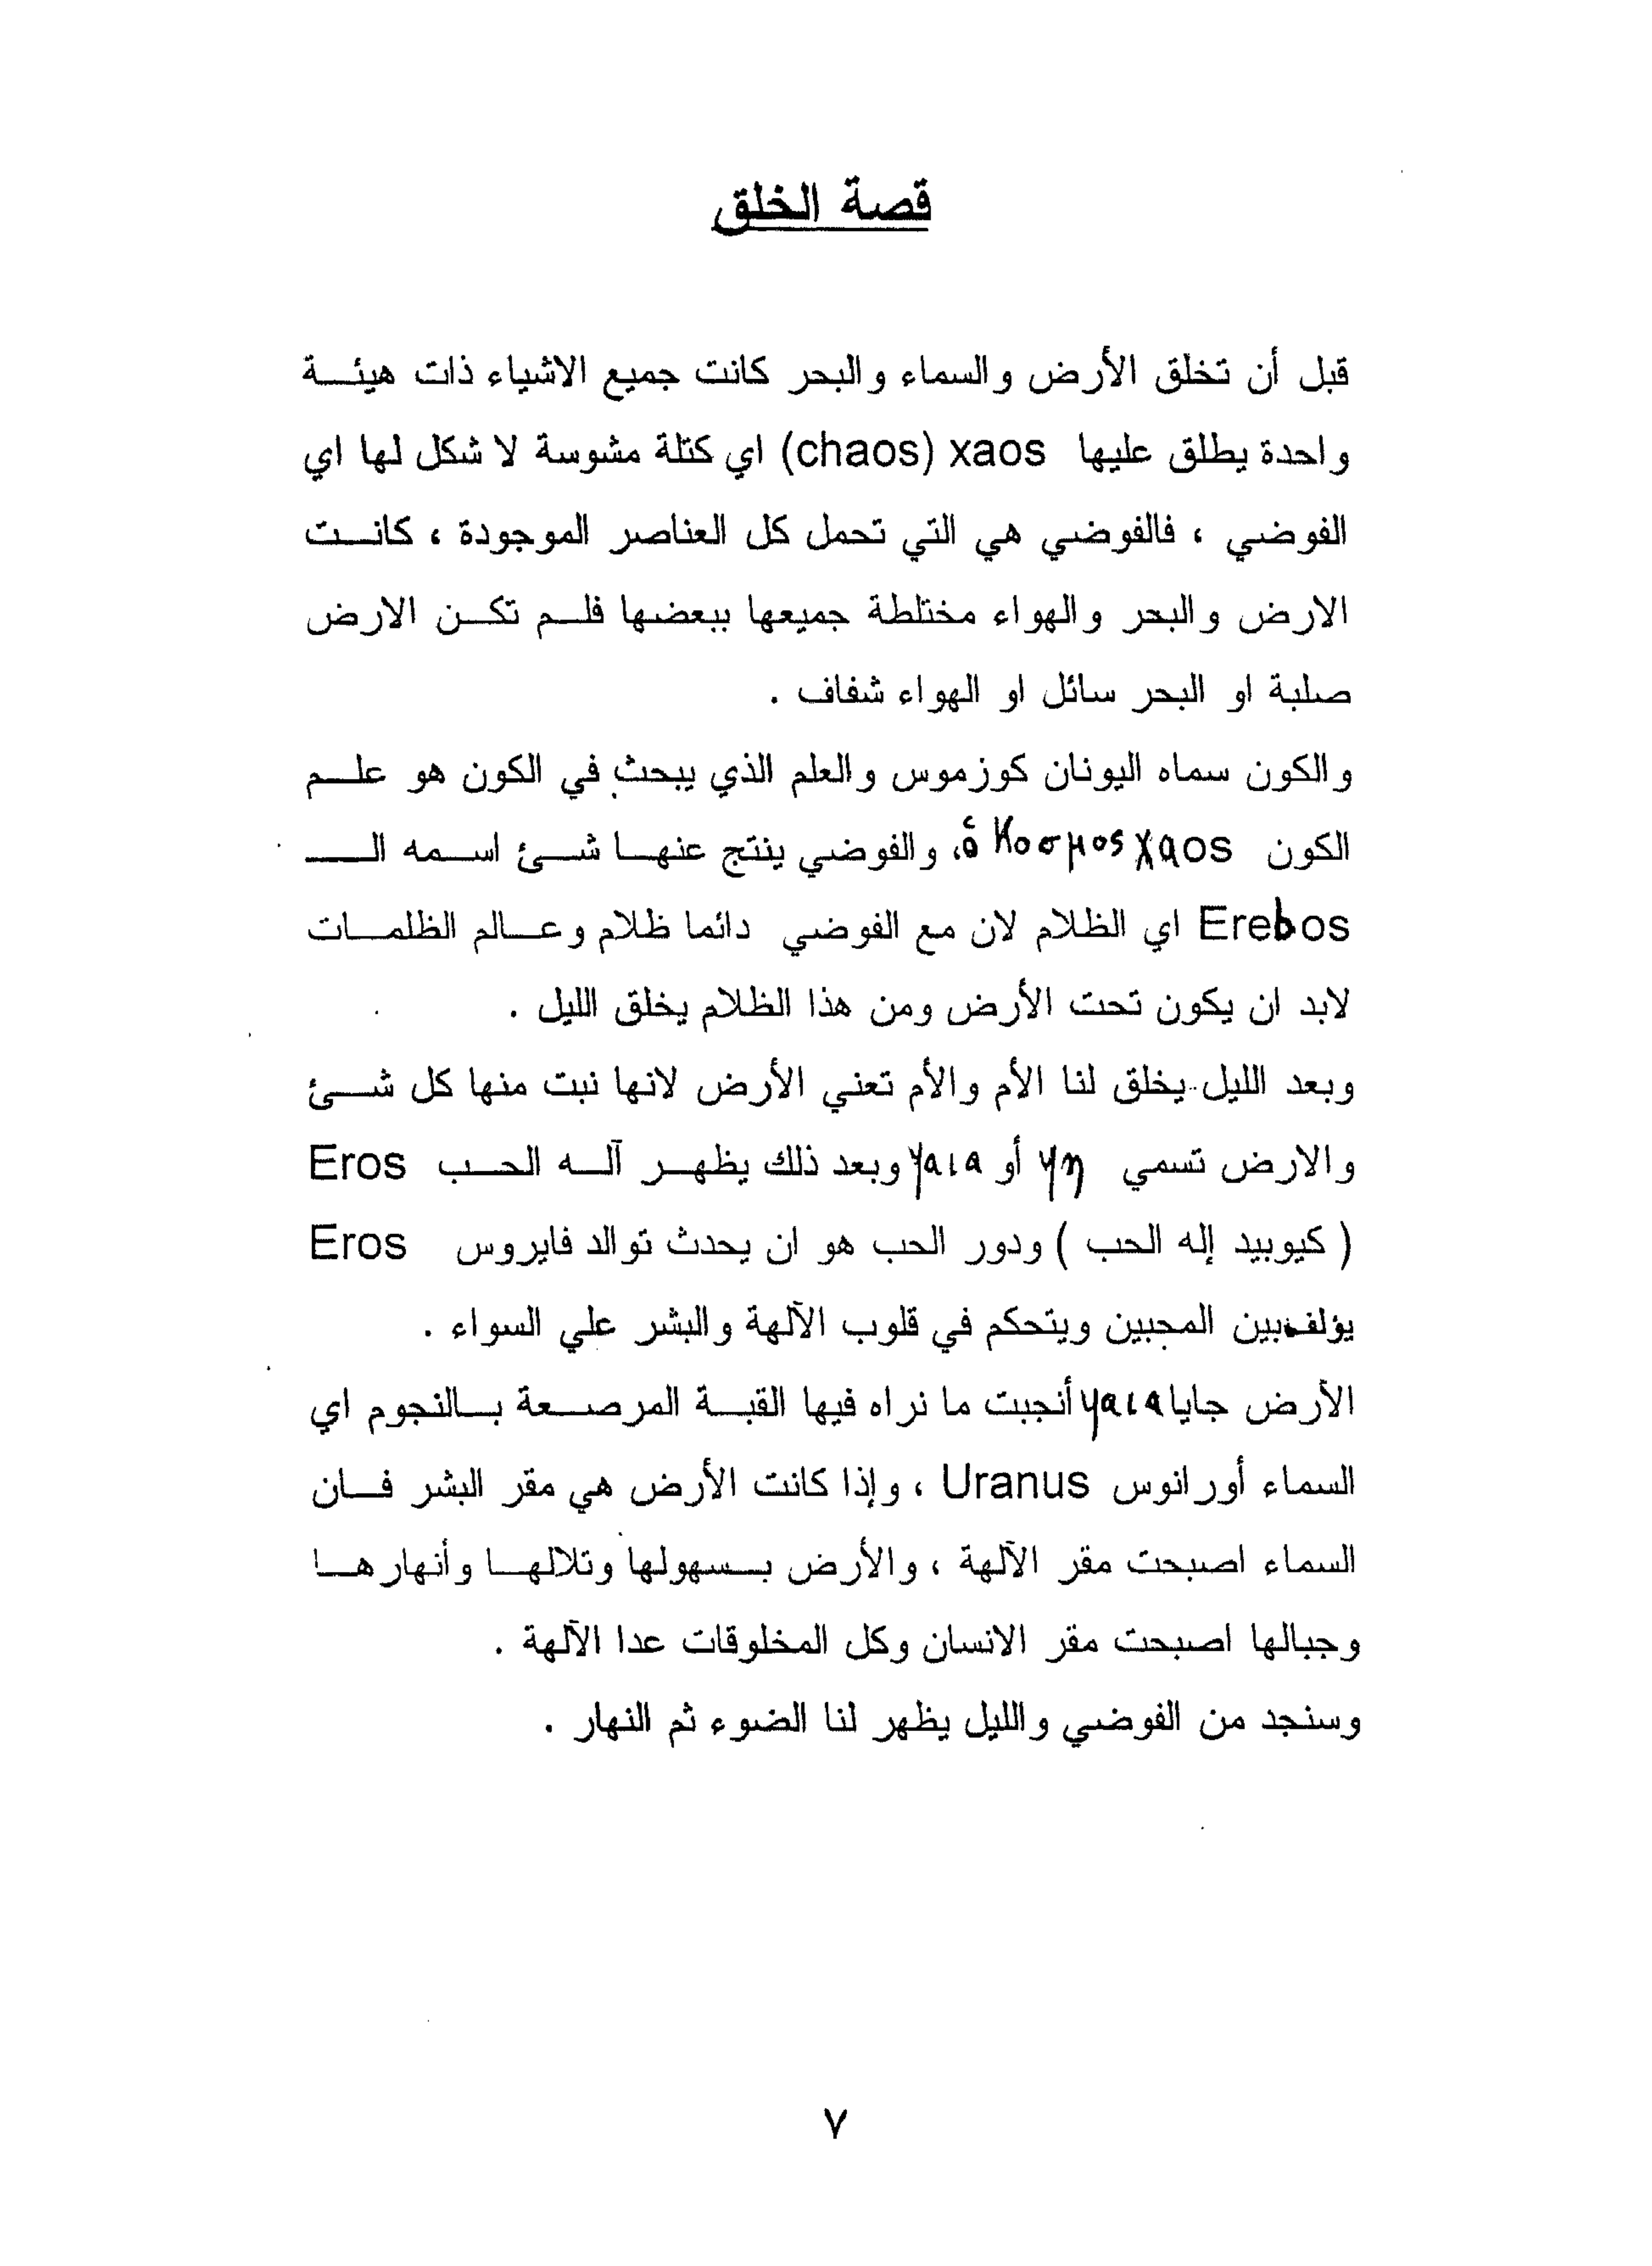 قصة الخلق
قبل أن تخلق الأرض والسماء والبحر كانت جميع الاشياء ذات هيئة
واحدة يطلق عليها xaos (chaos) اي كتلة مشوسة لا شكل لها اي
الفوضي ، فالفوضي هي التي تحمل كل العناصر الموجودة ، كانت
الارض والبحر والهواء مختلطة جميعها ببعضها فلم تكن الارض
صلبة او البحر سائل او الهواء شفاف .
والكون سماه اليونان كوزموس والعلم الذي يبحث في الكون هو علم
الكون χaos ὁ κοσμος، والفوضي ينتج عنها شئ اسمه الـ
Erebos اي الظلام لان مع الفوضي دائما ظلام وعالم الظلمات
لابد ان يكون تحت الأرض ومن هذا الظلام يخلق الليل .
وبعد الليل يخلق لنا الأم والأم تعني الأرض لانها نبت منها كل شئ
والارض تسمي γη أو γαια وبعد ذلك يظهر آله الحب Eros
( كيوبيد إله الحب ) ودور الحب هو ان يحدث توالد فايروس Eros
يؤلف بين المحبين ويتحكم في قلوب الآلهة والبشر علي السواء .
الأرض جايا γαια أنجبت ما نراه فيها القبة المرصعة بالنجوم اي
السماء أورانوس Uranus ، وإذا كانت الأرض هي مقر البشر فان
السماء اصبحت مقر الآلهة ، والأرض بسهولها وتلالها وأنهارها
وجبالها اصبحت مقر الانسان وكل المخلوقات عدا الآلهة .
وسنجد من الفوضي والليل يظهر لنا الضوء ثم النهار .
٧